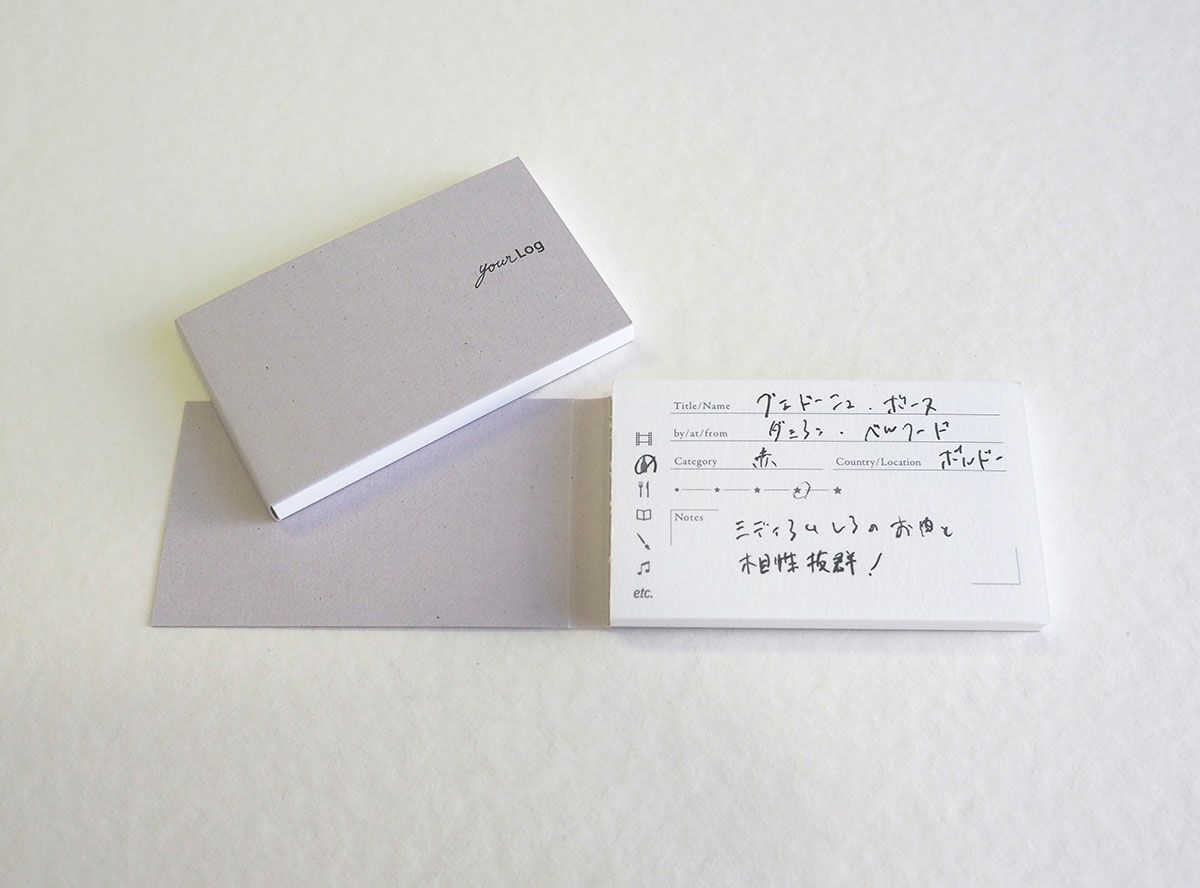 yourLog
Title/Name グェドーシュ・ボース
by/at/from ダミアン・ベルフード
Category 赤 Country/Location ボルドー
Notes
ミディアムレアのお肉と
相性抜群!
etc.